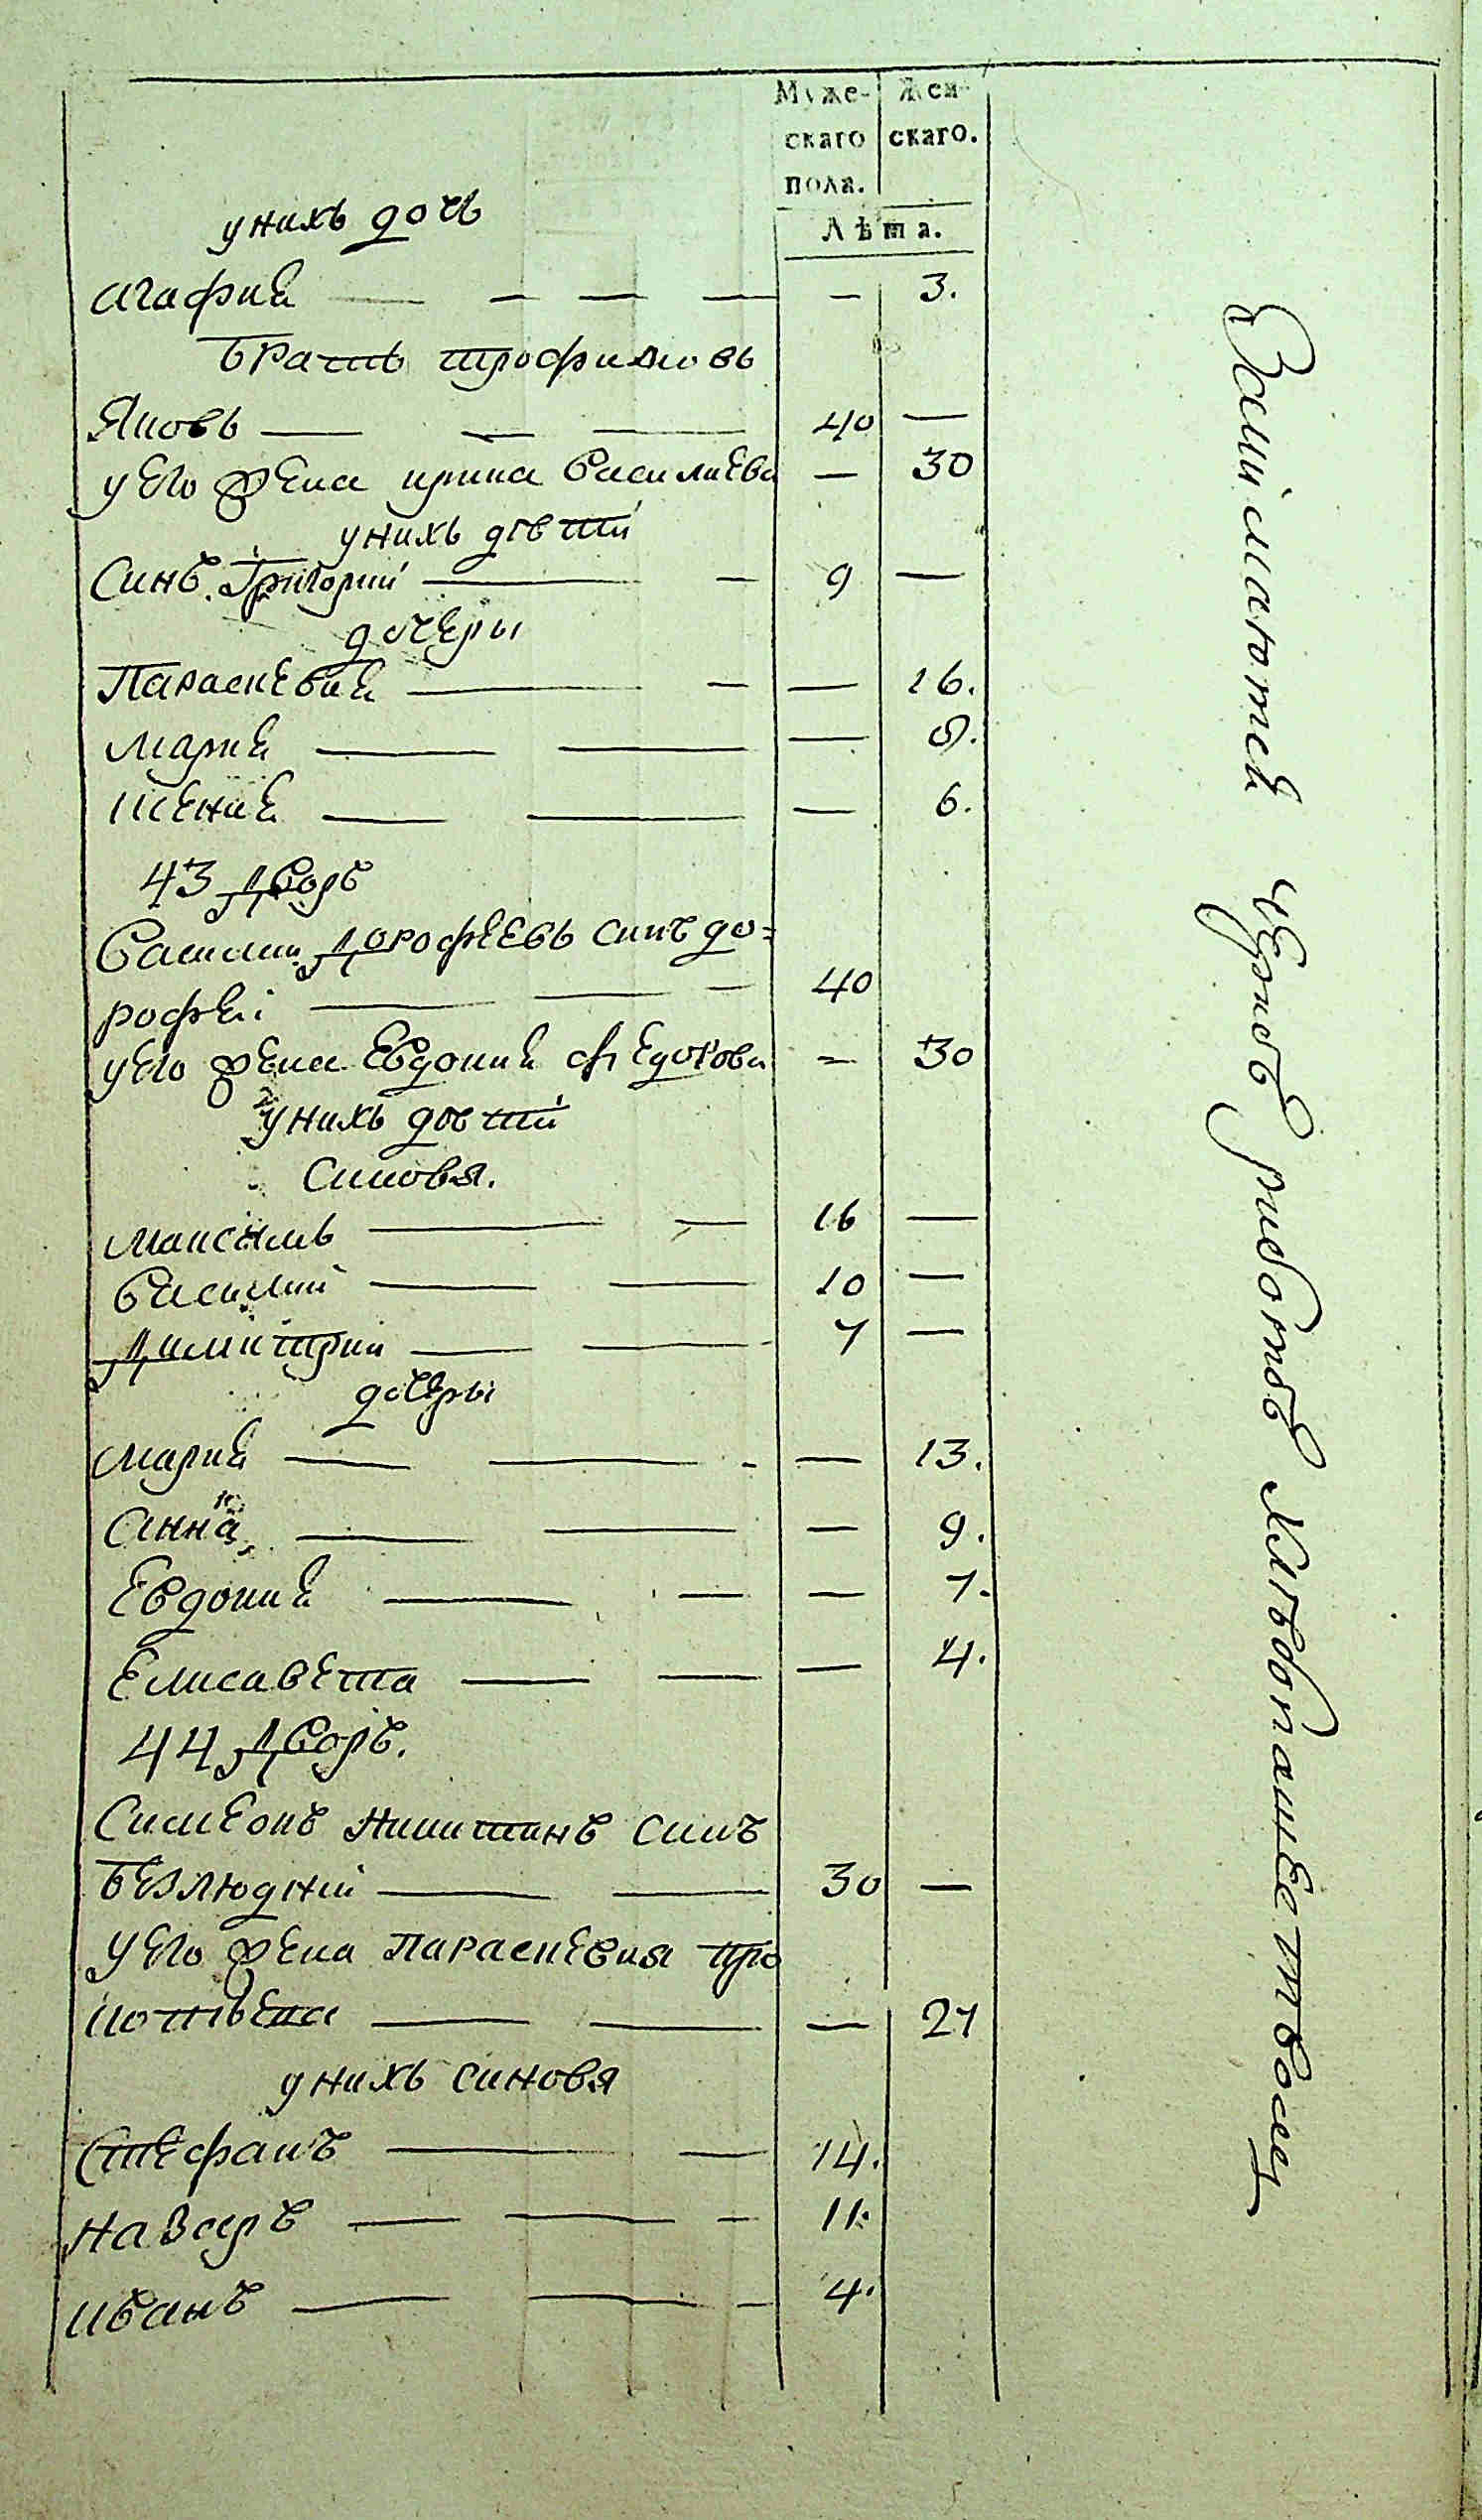 Муже- Жен-
скаго скаго.
пола.
Лѣта.
у нихъ дочь
Агафия — 3.
братъ трофимовъ
Яковъ 40 —
у его жена ирина василиева — 30
у нихъ дѣти
Синъ Григорий 9 —
дочеры
Параскевия — 16.
Мария — 8.
Ксения — 6.
43 Дворъ
Василий Дорофеевъ синъ до=
рофеи 40
у его жена Евдокия Федорова — 30
у нихъ дѣти
Синовя.
Максимъ 16 —
Василий 10 —
Димитрий 7 —
дочеры
Мария — 13.
Анна — 9.
Евдокия — 7.
Елисавета — 4.
44 Дворъ.
Симеонъ Никитинъ синъ
безлюдний 30 —
у его жена Параскевия про
кофиева — 27
у нихъ синовя
Стефанъ 14.
Назаръ 11.
иванъ 4.
Занимаются чрезъ работъ хлѣбопашеством